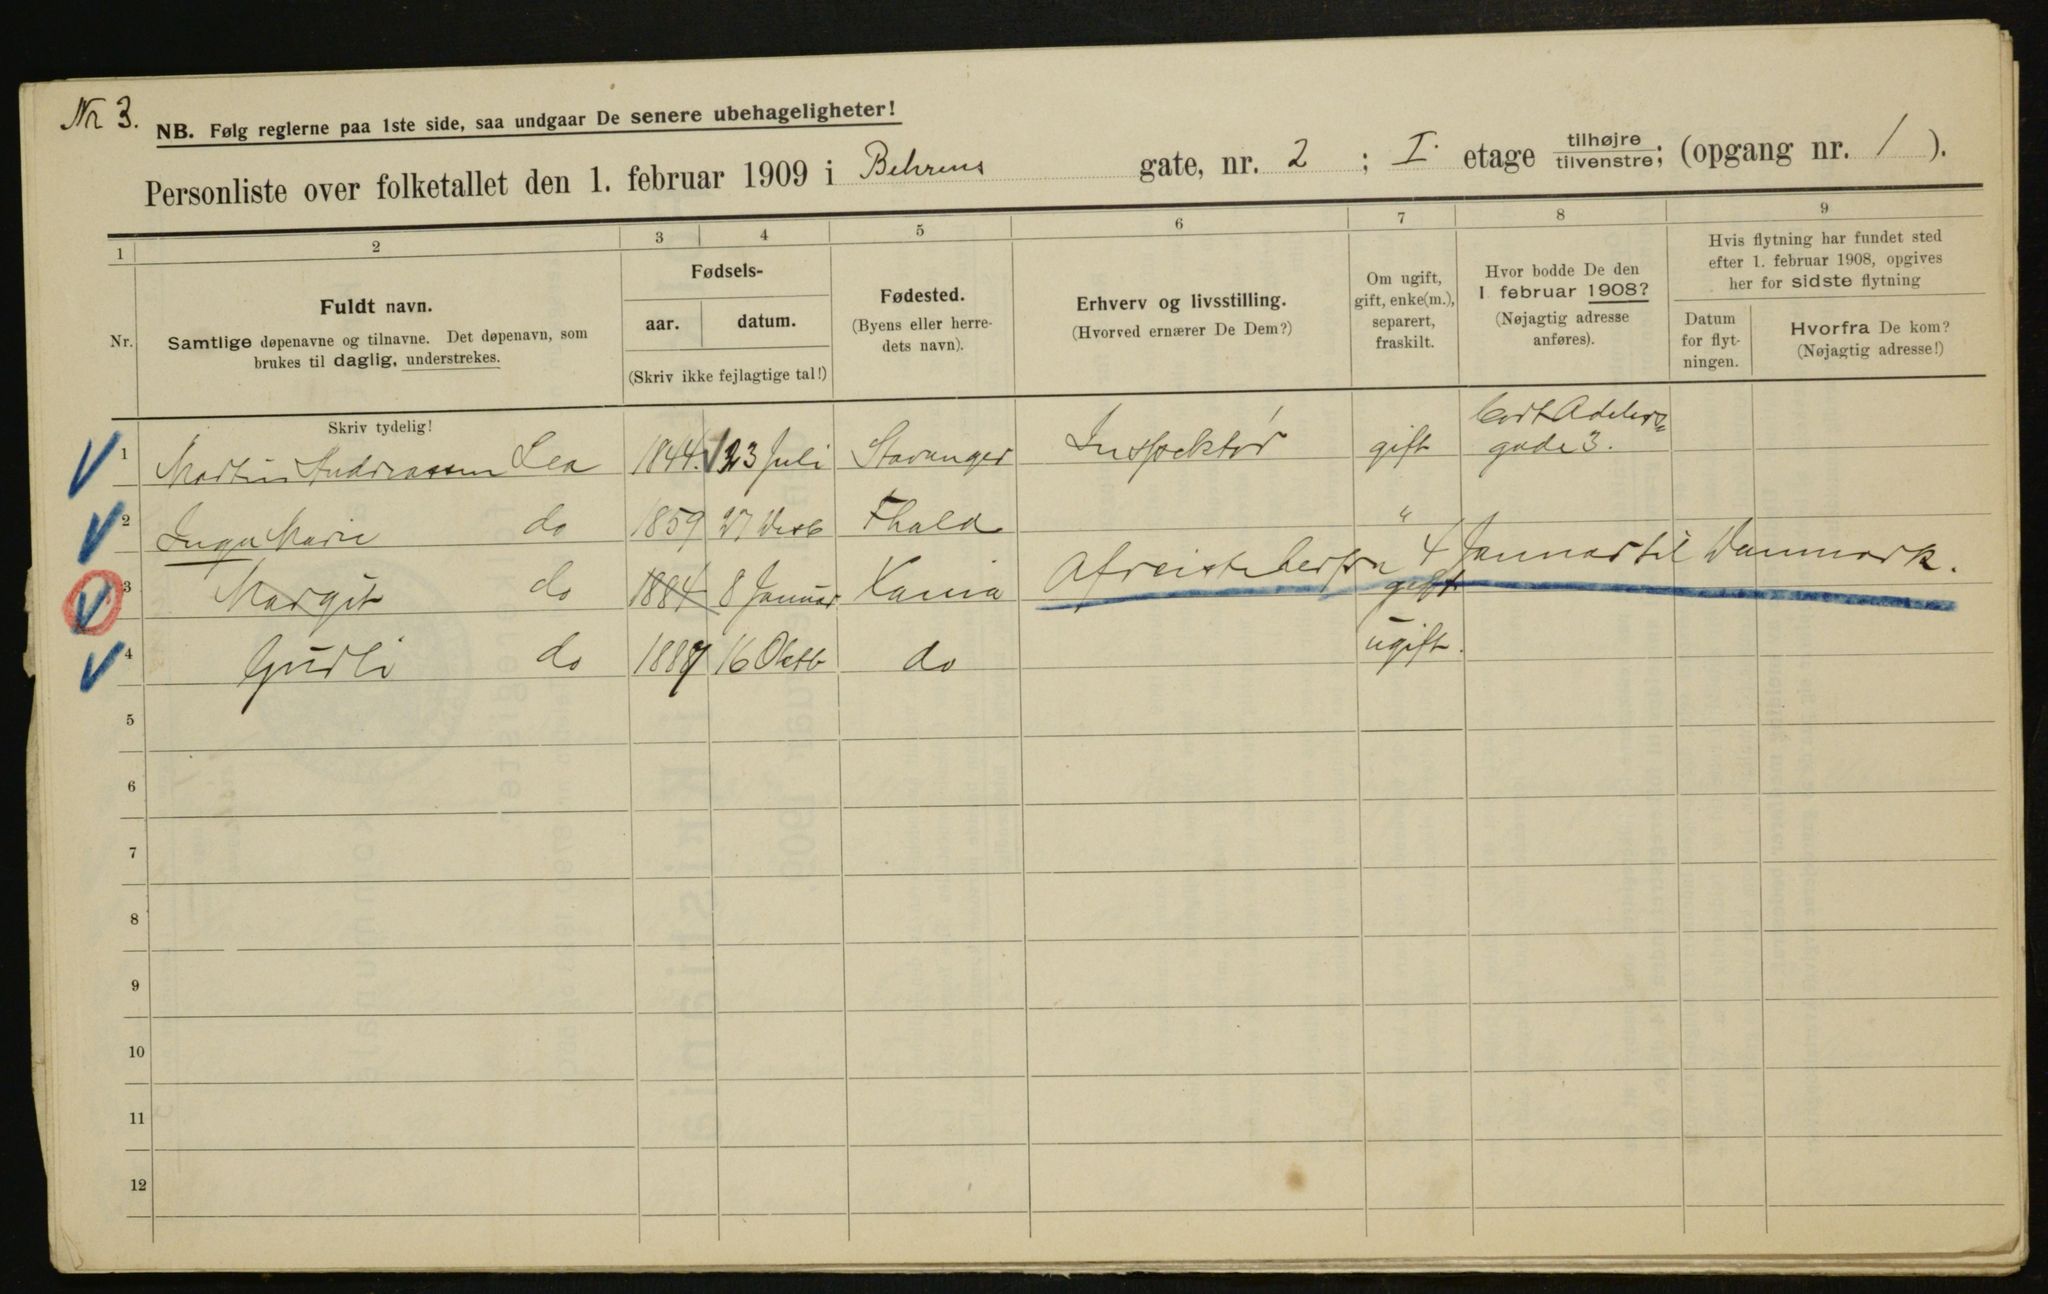 Nr 3.
NB. Følg reglerne paa 1ste side, saa undgaar De senere ubehageligheter!
Personliste over folketallet den 1. februar 1909 i Behrens gate, nr. 2 ; I. etage tilhøjre/tilvenstre; (opgang nr. 1 ).
1 2 3 4 5 6 7 8 9
Nr.
Fuldt navn.
Samtlige døpenavne og tilnavne. Det døpenavn, som
brukes til daglig, understrekes.
Fødsels-
aar. datum.
(Skriv ikke fejlagtige tal!)
Fødested.
(Byens eller herre-
dets navn).
Erhverv og livsstilling.
(Hvorved ernærer De Dem?)
Om ugift,
gift, enke(m.),
separert,
fraskilt.
Hvor bodde De den
1 februar 1908?
(Nøjagtig adresse
anføres).
Hvis flytning har fundet sted
efter 1. februar 1908, opgives
her for sidste flytning
Datum
for flyt-
ningen.
Hvorfra De kom?
(Nøjagtig adresse!)
Skriv tydelig!
1 Martin Andreassen Lea 1844. 23 Juli Stavanger Inspektør gift Cort Adelers
gade 3.
2 Inga Marie do 1859 27 Fhald "
3 Margit do 1884 8 Januar Xania Afreiste herfra 4 Januar til Danmark.
gift
4 Gudli do 1887 16 Oktb do ugift.
5
6
7
8
9
10
11
12